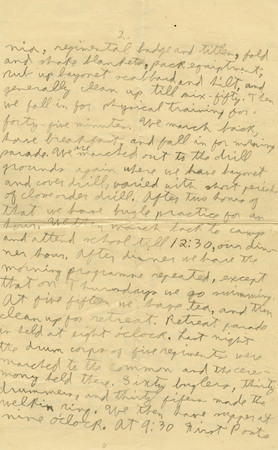 2.
nia, regimental badge and titles, fold
and shake blankets, pack equipment,
rub up bayonet scabbard and hilt, and
generally clean up till six-fifty. Then
we fall in for physical training for
forty-five minutes. We march back,
have breakfast, and fall in for morning
parade. We are marched out to the drill
grounds again where we have bayonet
and cover drill, varied with short periods
of close order drill. After two hours of
that we have bugle practice for an
hour. We march back to camp
and attend school till 12:30, our din-
ner hour. After dinner we have the
morning programme repeated, except
that on Thursdays we go swimming.
At five fifteen we have tea, and then
clean up for retreat. Retreat parade
is held at eight o'clock. Last night
the drum corps of five regiments were
marched to the common and the cere-
mony held there. Sixty buglers, thirty
drummers, and thirty fifers made the
welkin ring. We then have supper at
nine o'clock. At 9:30 First Post